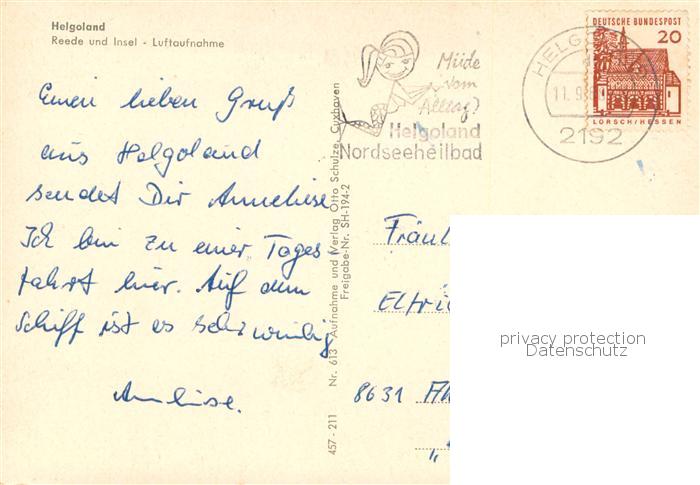 Helgoland
Reede und Insel - Luftaufnahme
Einen lieben Gruß
aus Helgoland
sendet Dir Anneliese
Ich bin zu einer Tages-
fahrt hier. Auf dem
Schiff ist es sehr windig
Anneliese.
457 - 211 Nr. 613 Aufnahme und Verlag Otto Schulze, Cuxhaven
Freigabe-Nr. SH-194-2
Müde
vom
Alltag?
Helgoland
Nordseeheilbad
HELG
11. 9.
2192
DEUTSCHE BUNDESPOST
20
LORSCH/HESSEN
Fräul
Elfrie
8631
privacy protection
Datenschutz